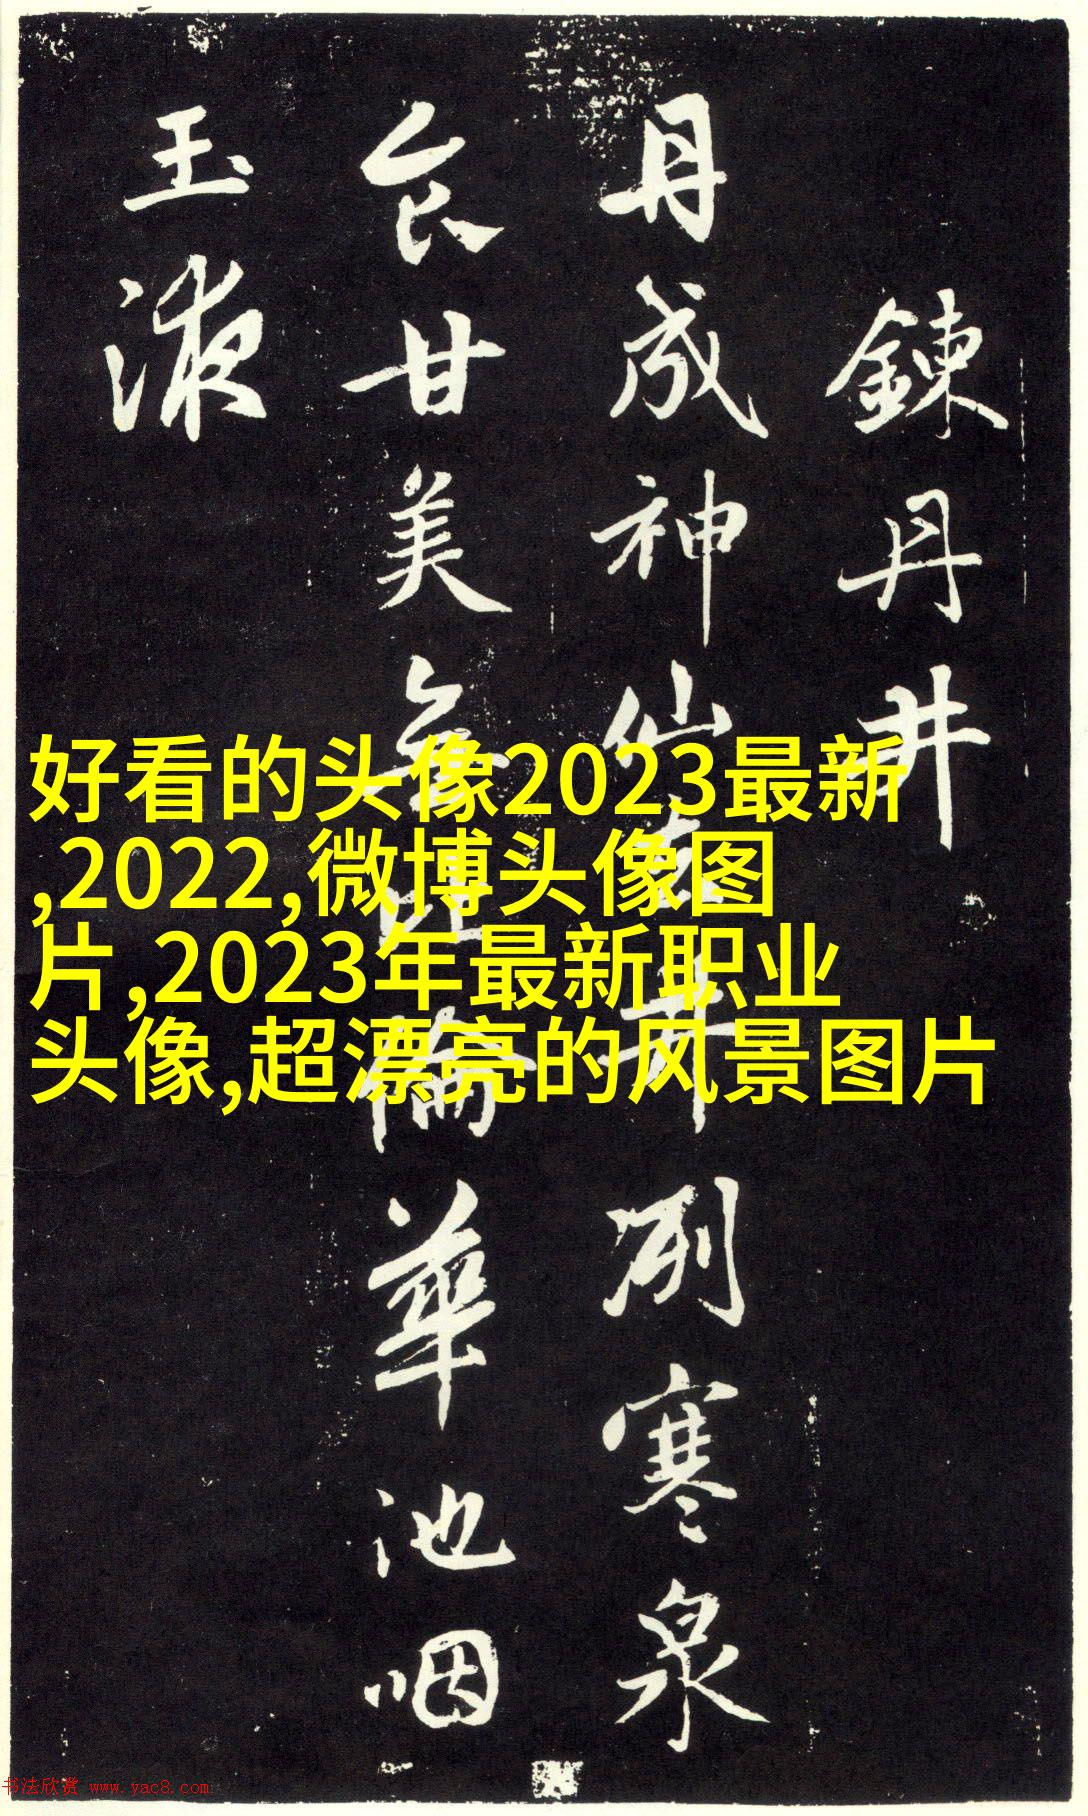 鍊丹井
丹成神仙去井冽寒泉
食甘美無比倫華池咽
玉液
好看的头像2023最新
,2022,微博头像图
片,2023年最新职业
头像,超漂亮的风景图片
书法欣赏 www.yac8.com